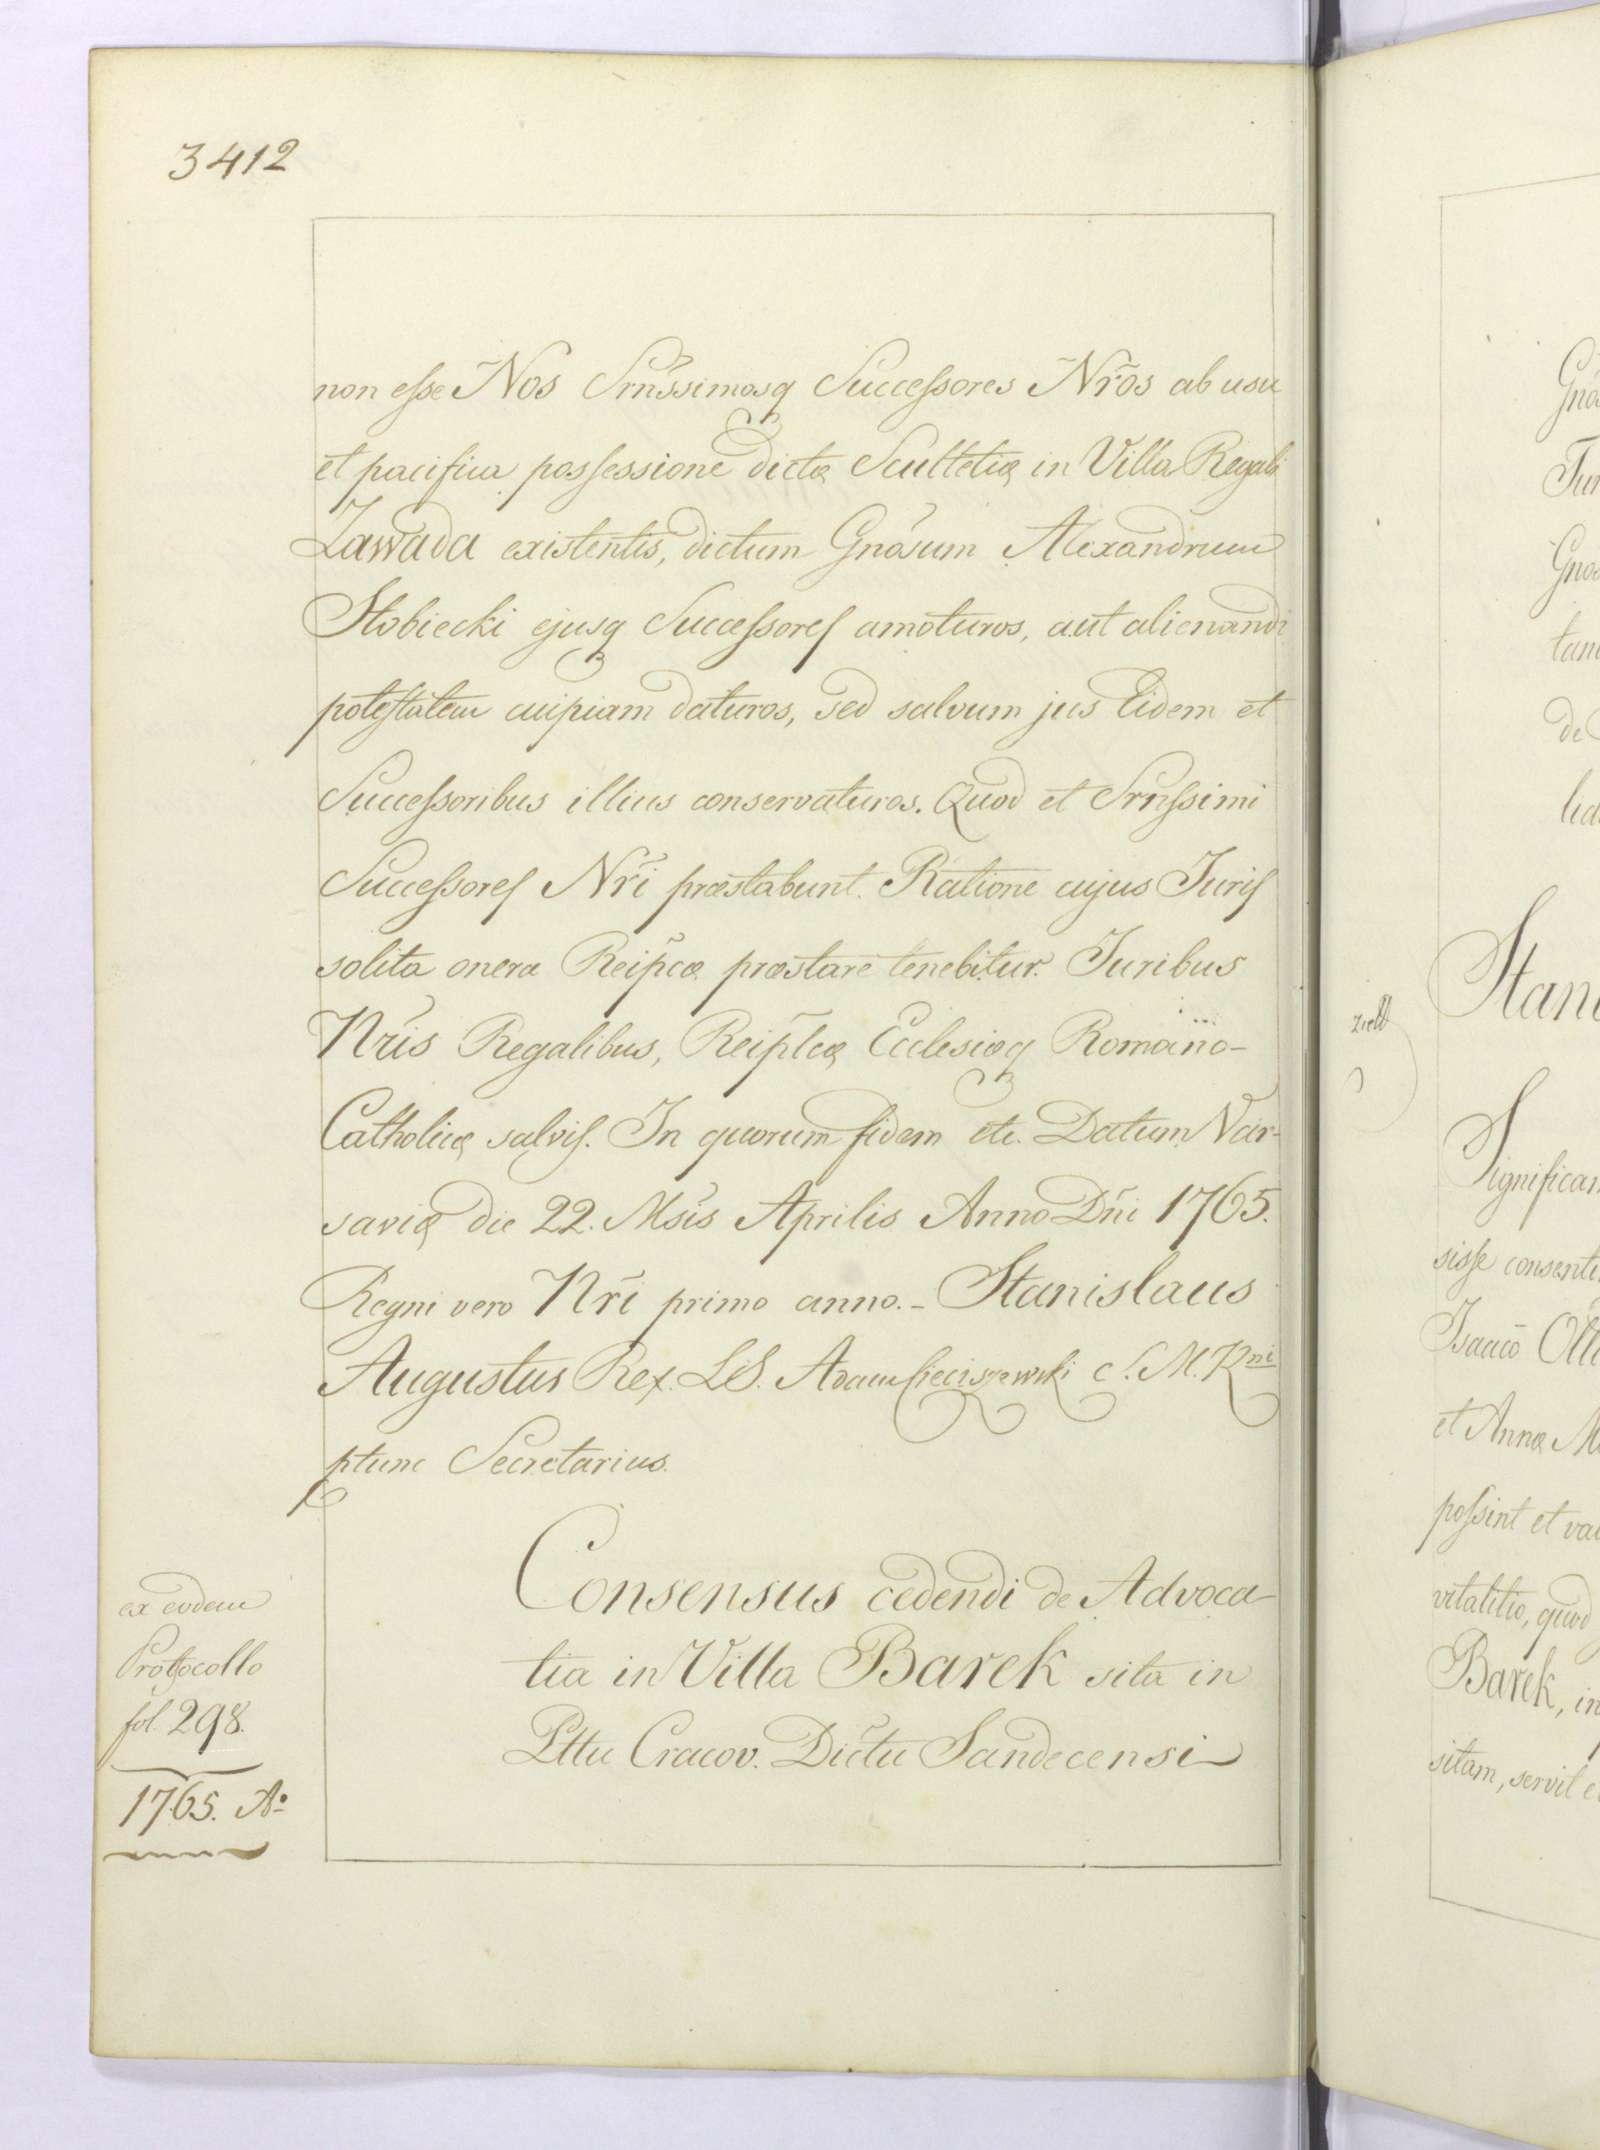 3412
non esse Nos Srñssimosq Successores Nr̃os ab usu
et pacifica possessione dictæ Scultetiæ in Villa Regali
Zawada existentis, dictum Gnõsum Alexandrum
Stobiecki ejusq Successores amoturos, aut alienandi
potestatem cuipiam daturos, sed salvum jus Eidem et
Successoribus illius conservaturos. Quod et Srñssimi
Successores Nr̃i præstabunt. Ratione cujus Juris
solita onera Reip̃cæ præstare tenebitur. Juribus
Nr̃is Regalibus, Reip̃lcæ Ecclesiæq Romano-
Catholicæ salvis. In quorum fidem etc. Datum Var-
saviæ die 22. Msĩs Aprilis Anno Dñi 1765.
Regni vero Nr̃i primo anno. - Stanislaus
Augustus Rex. LS. Adam Cieciszewski S. M. Rni
ptunc Secretarius.
Consensus cedendi de Advoca-
tia in Villa Barek sita in
Pttu Cracov. Dictu Sandecensi
ex eodem
Prothocollo
fol. 298.
1765. Ao
Gnos
Jur
Gnos
tam
de
lid
Stani
Significam
sisse consenti
Isaaco
et Annæ
possint et va
vitalitio, quod
Barek, in
sitam, servit e